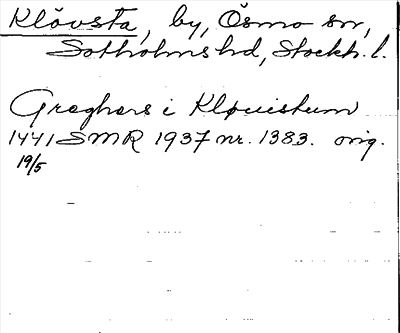 Klövsta, by, Ösmo sn,
Sotholms hd, Stockh. l.
Greghers i Kløuistum
1441 SMR 1937 nr. 1383. orig.
19/5